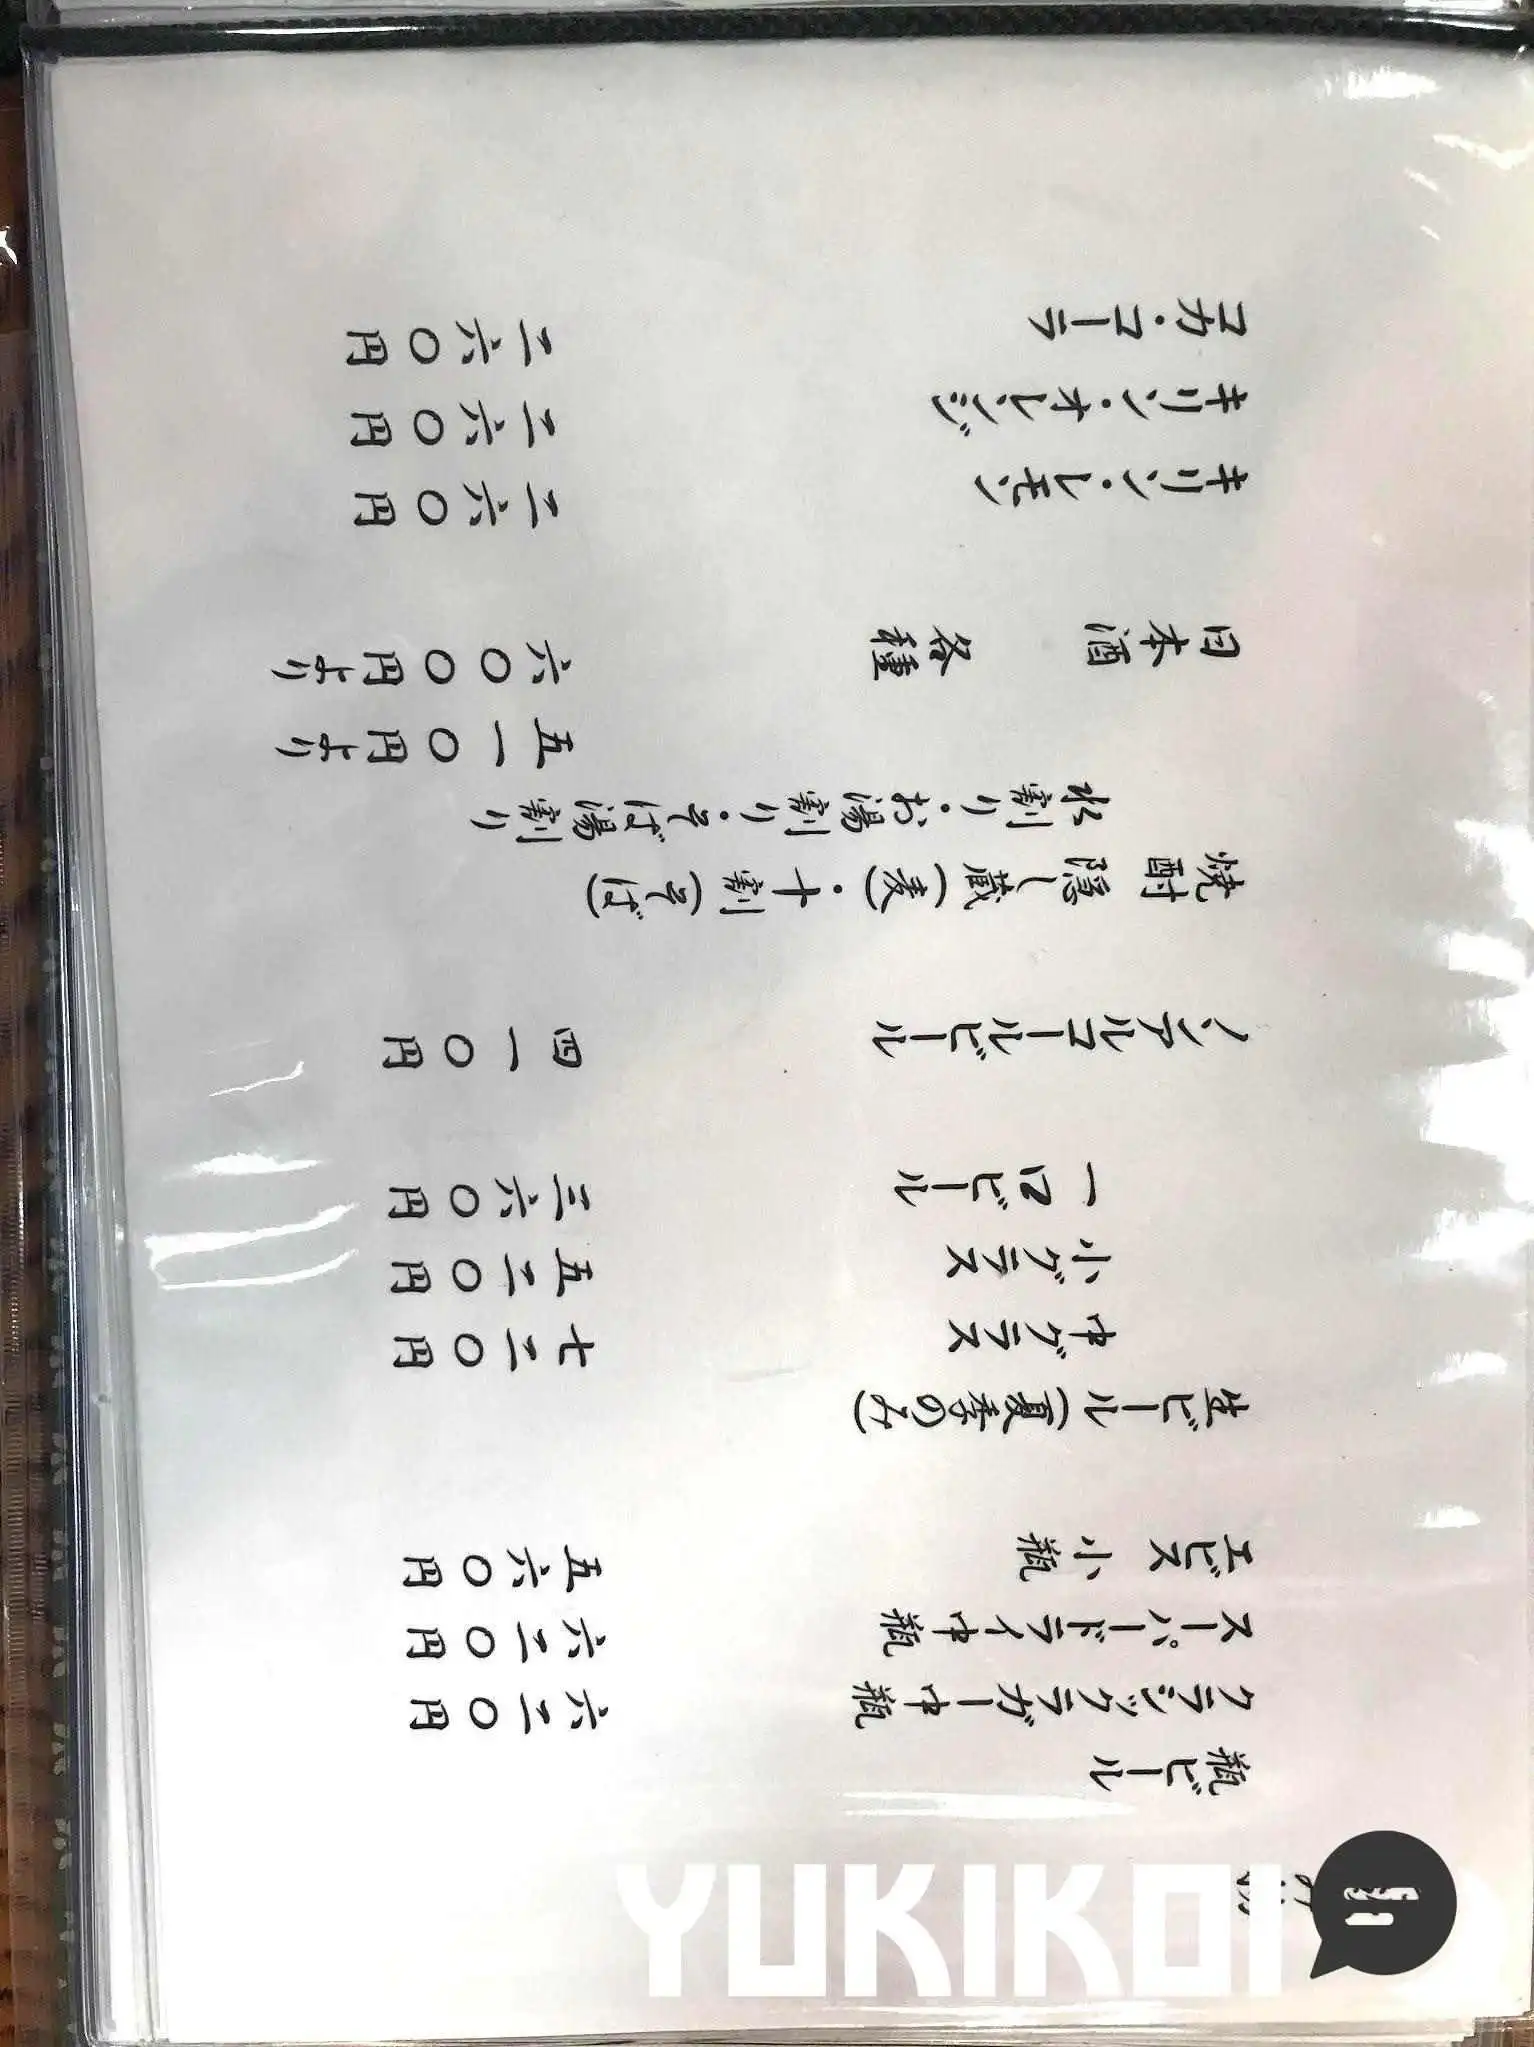 瓶ビール
クラシックラガー中瓶 六二〇円
スーパードライ中瓶 六二〇円
エビス 小瓶 五六〇円
生ビール(夏季のみ)
中グラス 七二〇円
小グラス 五二〇円
一口ビール 三六〇円
ノンアルコールビール 四一〇円
焼酎 隠し蔵(麦)・十割(そば)
水割り・お湯割り・そば湯割り
五一〇円より
日本酒 各種 六〇〇円より
キリン・レモン 二六〇円
キリン・オレンジ 二六〇円
コカ・コーラ 二六〇円
YUKIKOI